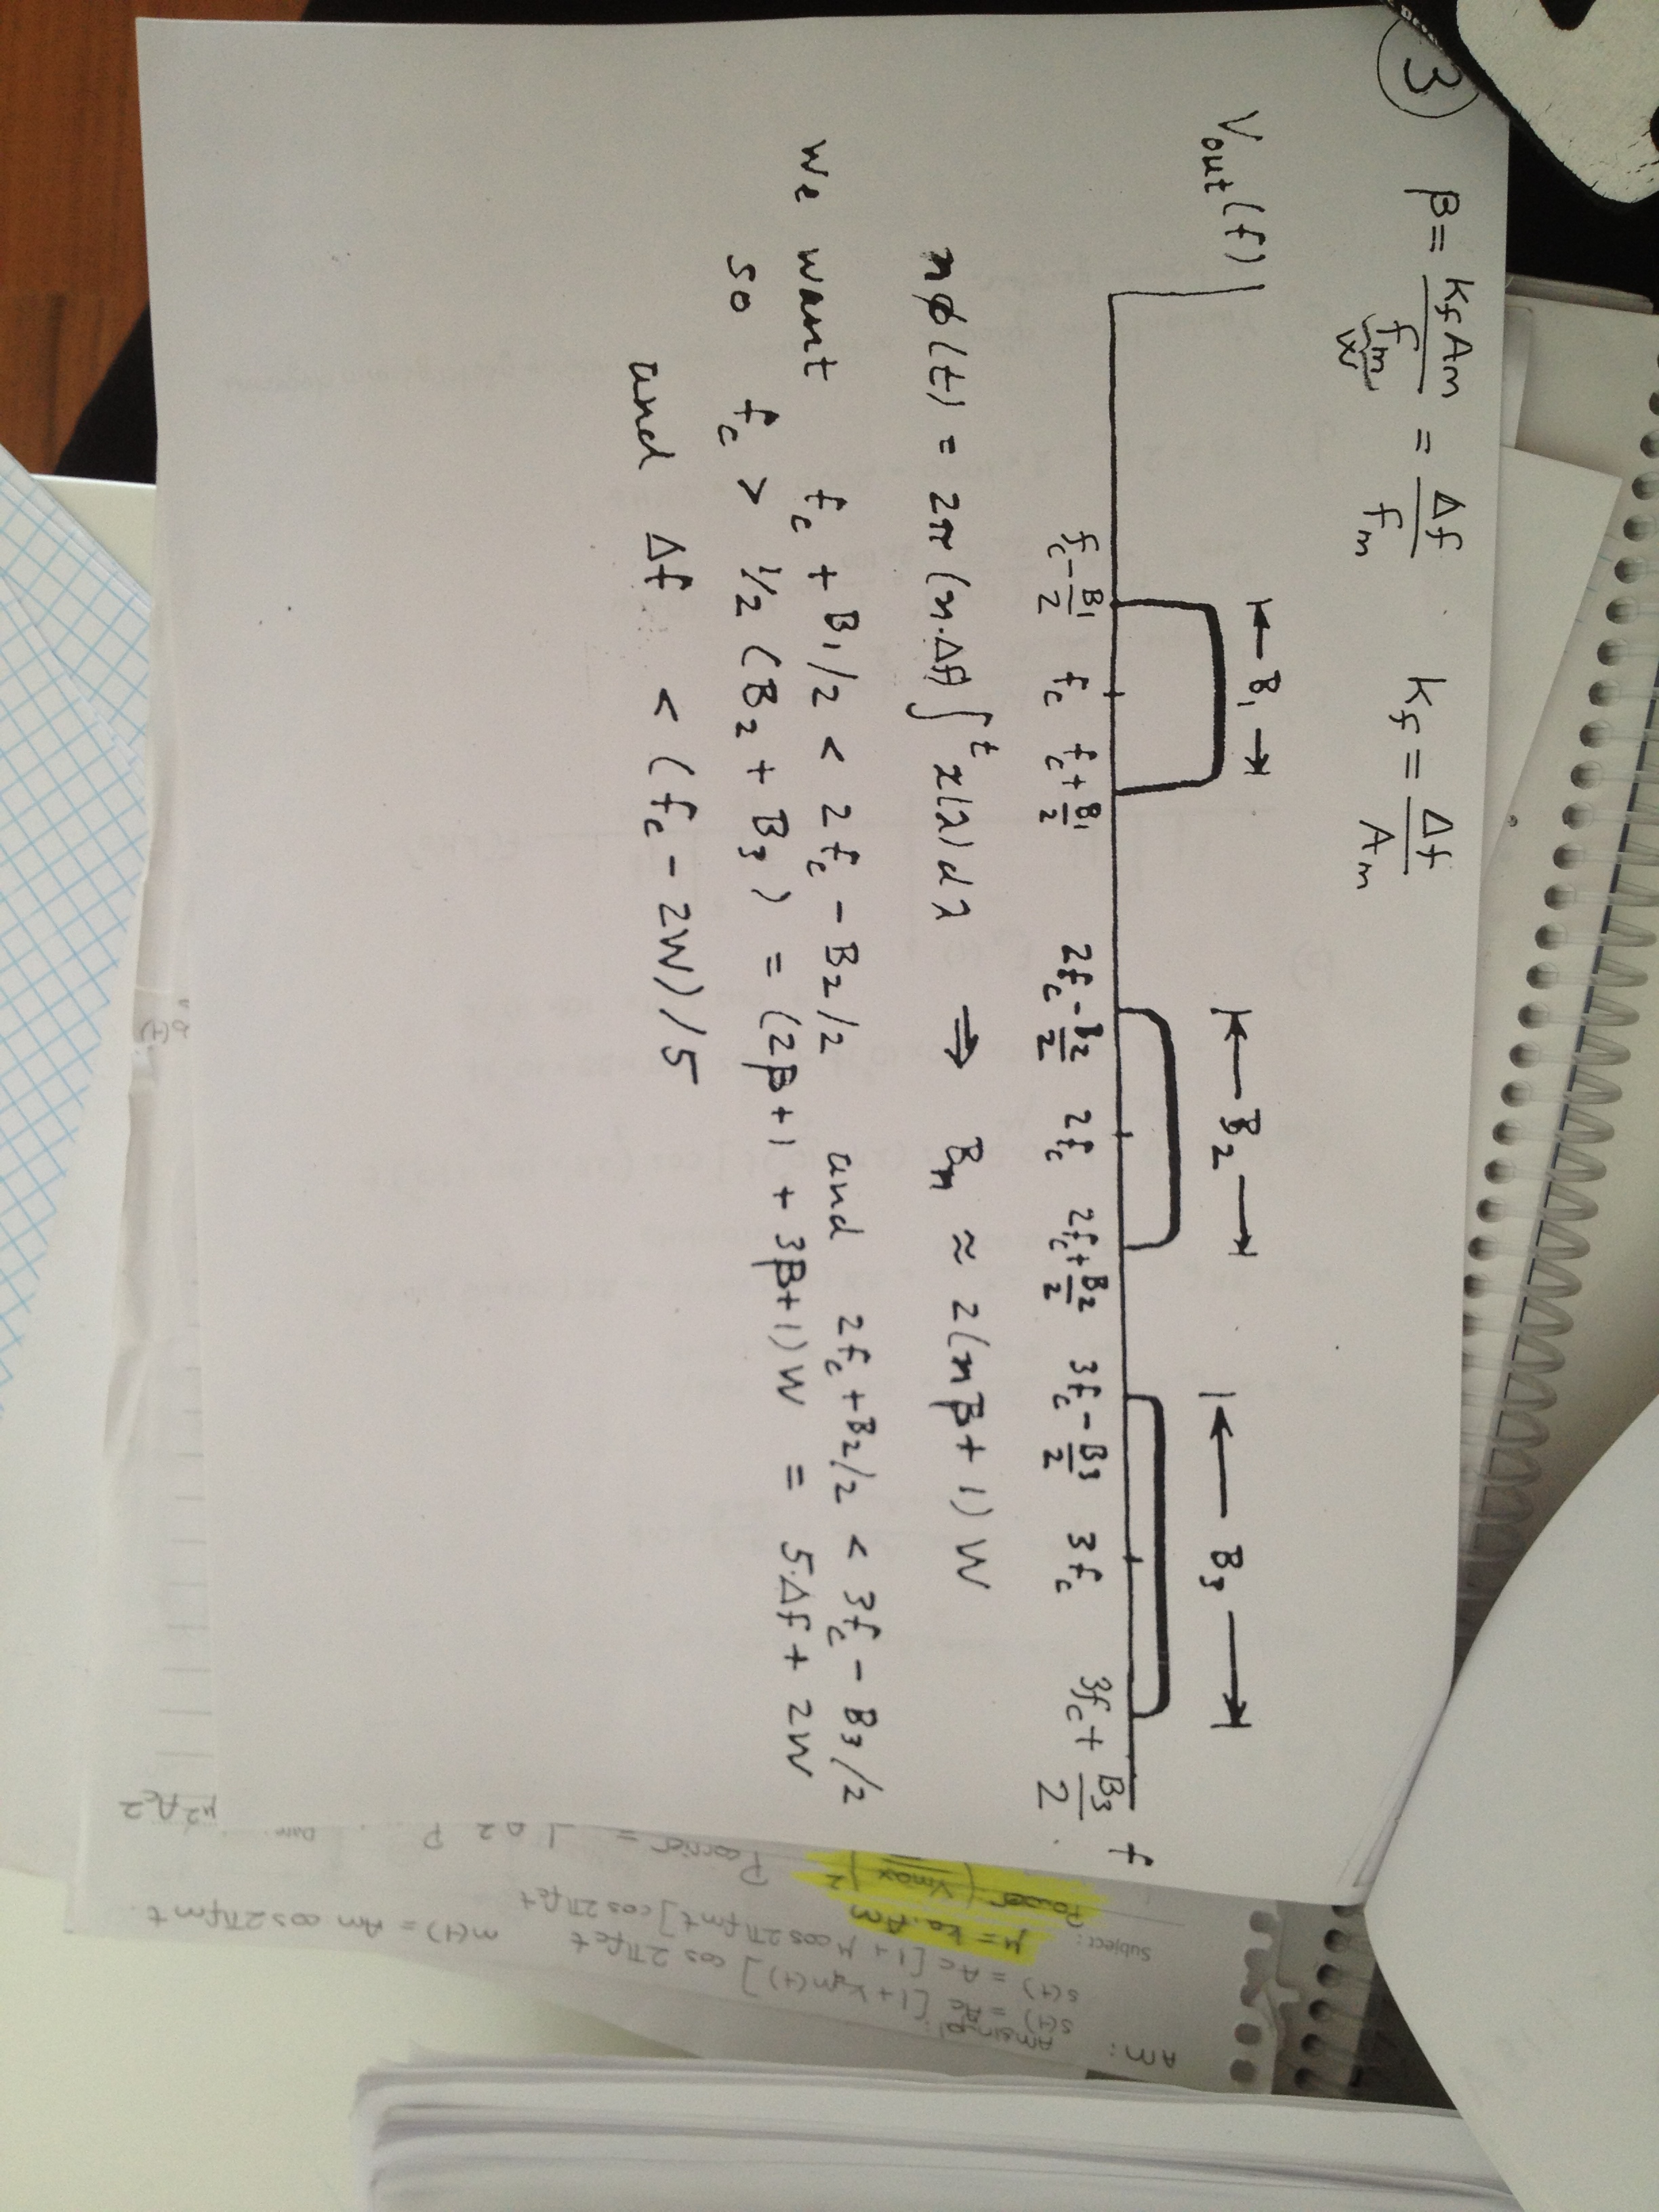 ③ β = KfAm / fm = Δf / fm   Kf = Δf / Am
W
Vout(f)
B1   B2   B3
fc - B1/2   fc   fc + B1/2   2fc - B2/2   2fc   2fc + B2/2   3fc - B3/2   3fc   3fc + B3/2   f
nφ(t) = 2π(n·Δf) ∫^t x(λ)dλ ⇒ Bn ≈ 2(nβ+1)W
We want fc + B1/2 < 2fc - B2/2 and 2fc + B2/2 < 3fc - B3/2
so fc > 1/2 (B2 + B3) = (2β+1 + 3β+1)W = 5·Δf + 2W
and Δf < (fc - 2W)/5
AM:
s(t) = Ac [1+ka m(t)] cos2πfct
s(t) = Ac [1+μcos2πfmt] cos2πfct   m(t) = Am cos2πfmt
Subject:
μ = ka.Am
Power (Vmax
Pcarrier =
Date:
μ2Ac2